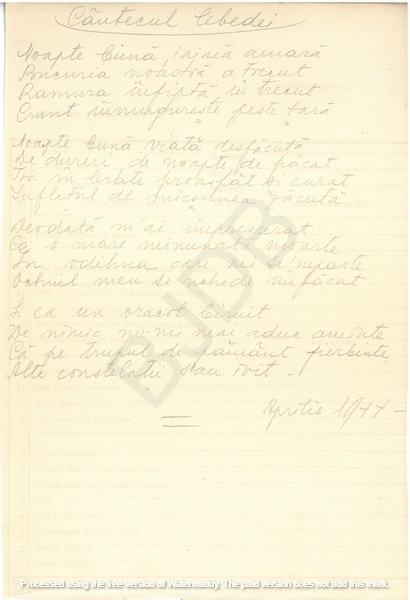 Cântecul lebedei
Noapte bună, inimă amară
Bucuria noastră a trecut
Ramura înfiptă în trecut
Crunt înmugurește peste țară
Noapte bună viață desfăcută
De dureri de noapte de păcat
Ion în brate proaspăt și curat
Sufletul de micsunea tăcută
Deodată m'ai împresurat
Ca o mare minunată moarte
În odihna care ni se mparte
Ochiul meu se nchide împăcat
Și ca un oracol biruit
De nimic nu-mi mai aduc aminte
Că pe trupul de pământ fierbinte
Alte constelatii s'au ivit -
Aprilie 1944 -
BJDB
Processed using the free version of Watermarkly. The paid version does not add this mark.